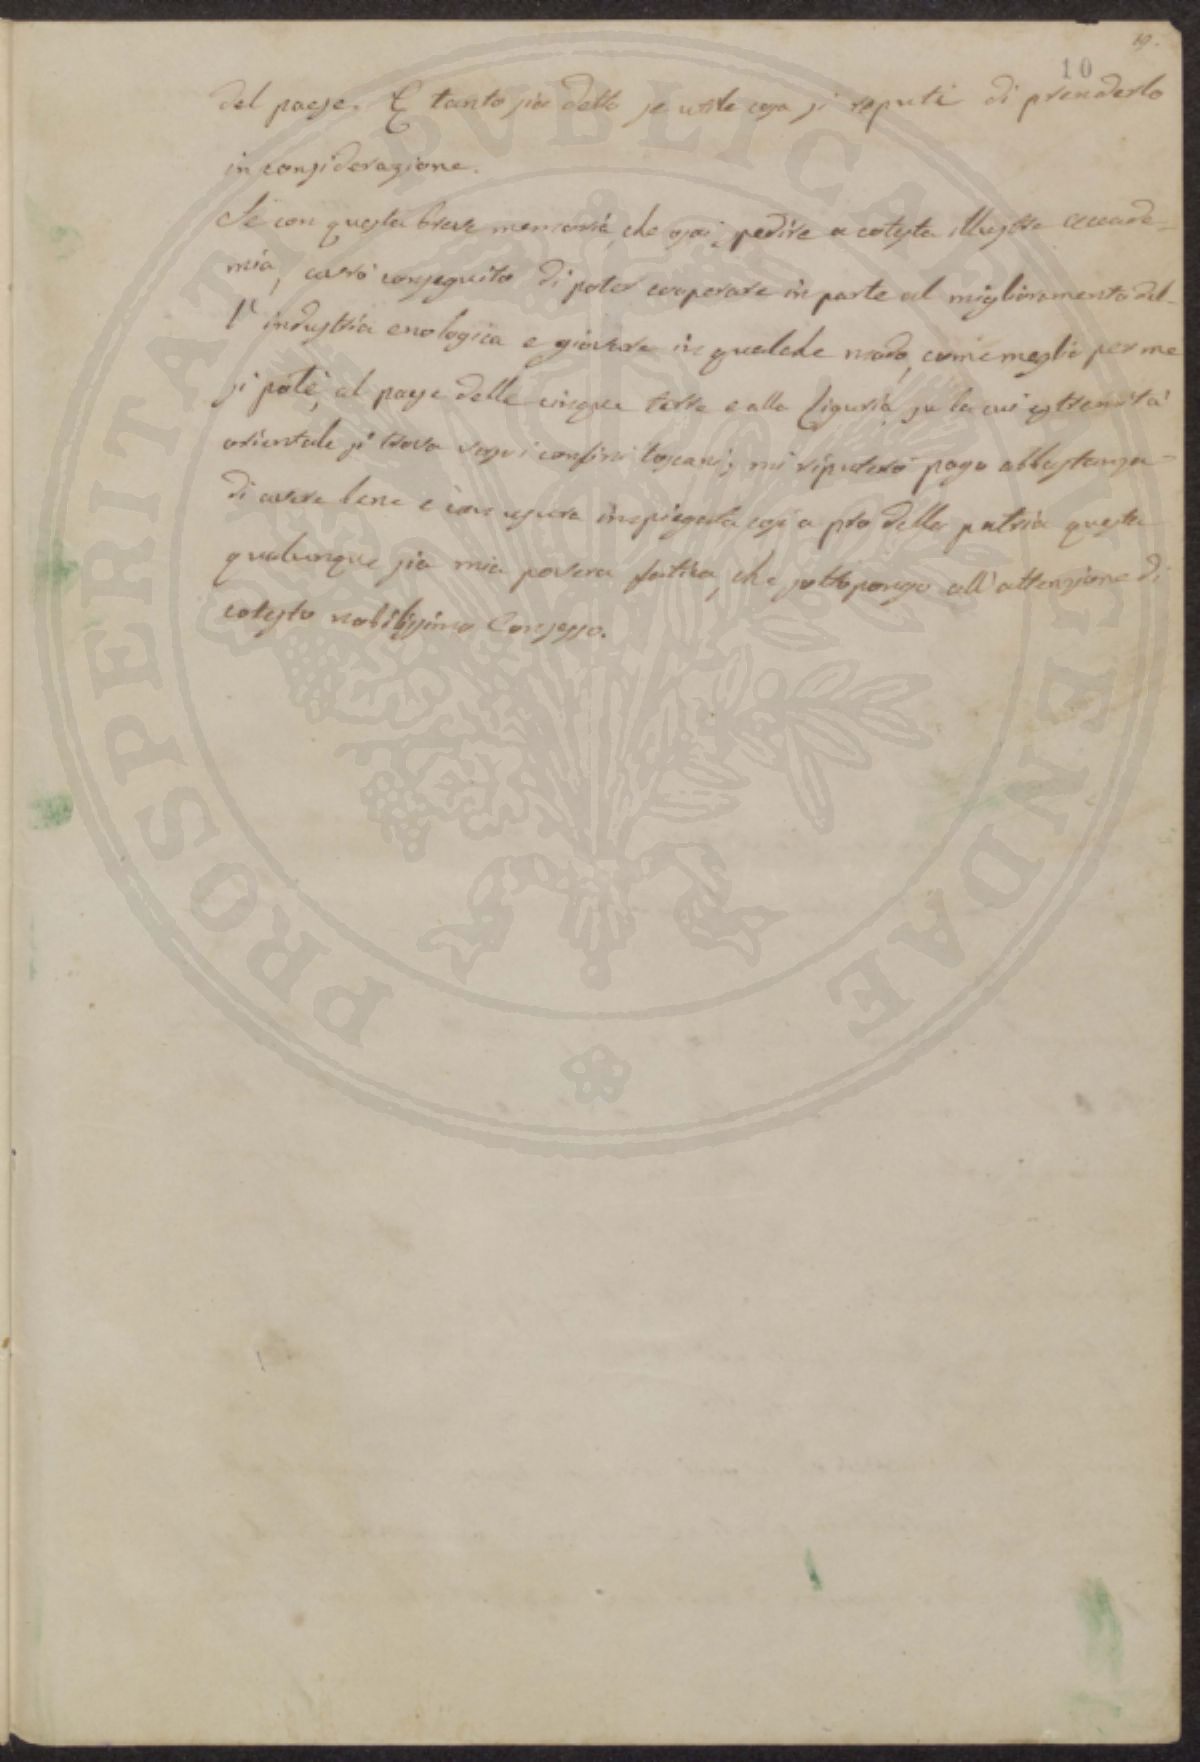 19.
10
del paese. E tanto sia detto se utile cosa si reputi di prenderlo
in considerazione.
Se con questa breve memoria, che osai spedire a cotesta illustre Accade-
mia, avrò conseguito di poter cooperare in parte al miglioramento del-
l'industria enologica e giovare in qualche modo, come meglio per me
si potè, al paese delle cinque terre e alla Liguria, su la cui estremità
orientale si trova verso i confini toscani; mi riputerò pago abbastanza
di avere bene e con usura impiegata così a pro della patria questa
qualunque sia mia povera fatica, che sottopongo all'attenzione di
cotesto nobilissimo Consesso.
PROSPERITATI PVBLICAE AVGENDAE